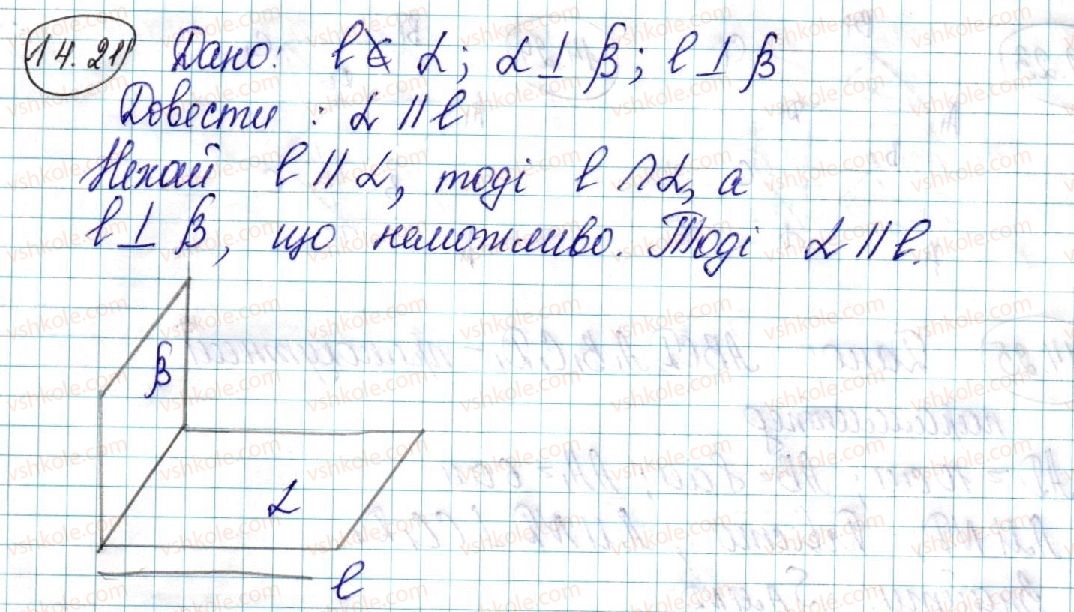 14.21 Дано: l ⊄ α; α ⊥ β; l ⊥ β
Довести : α || l
Нехай l ∦ α, тоді l ∩ α, а
l ⊥ β, що неможливо. Тоді α || l.
β
α
l